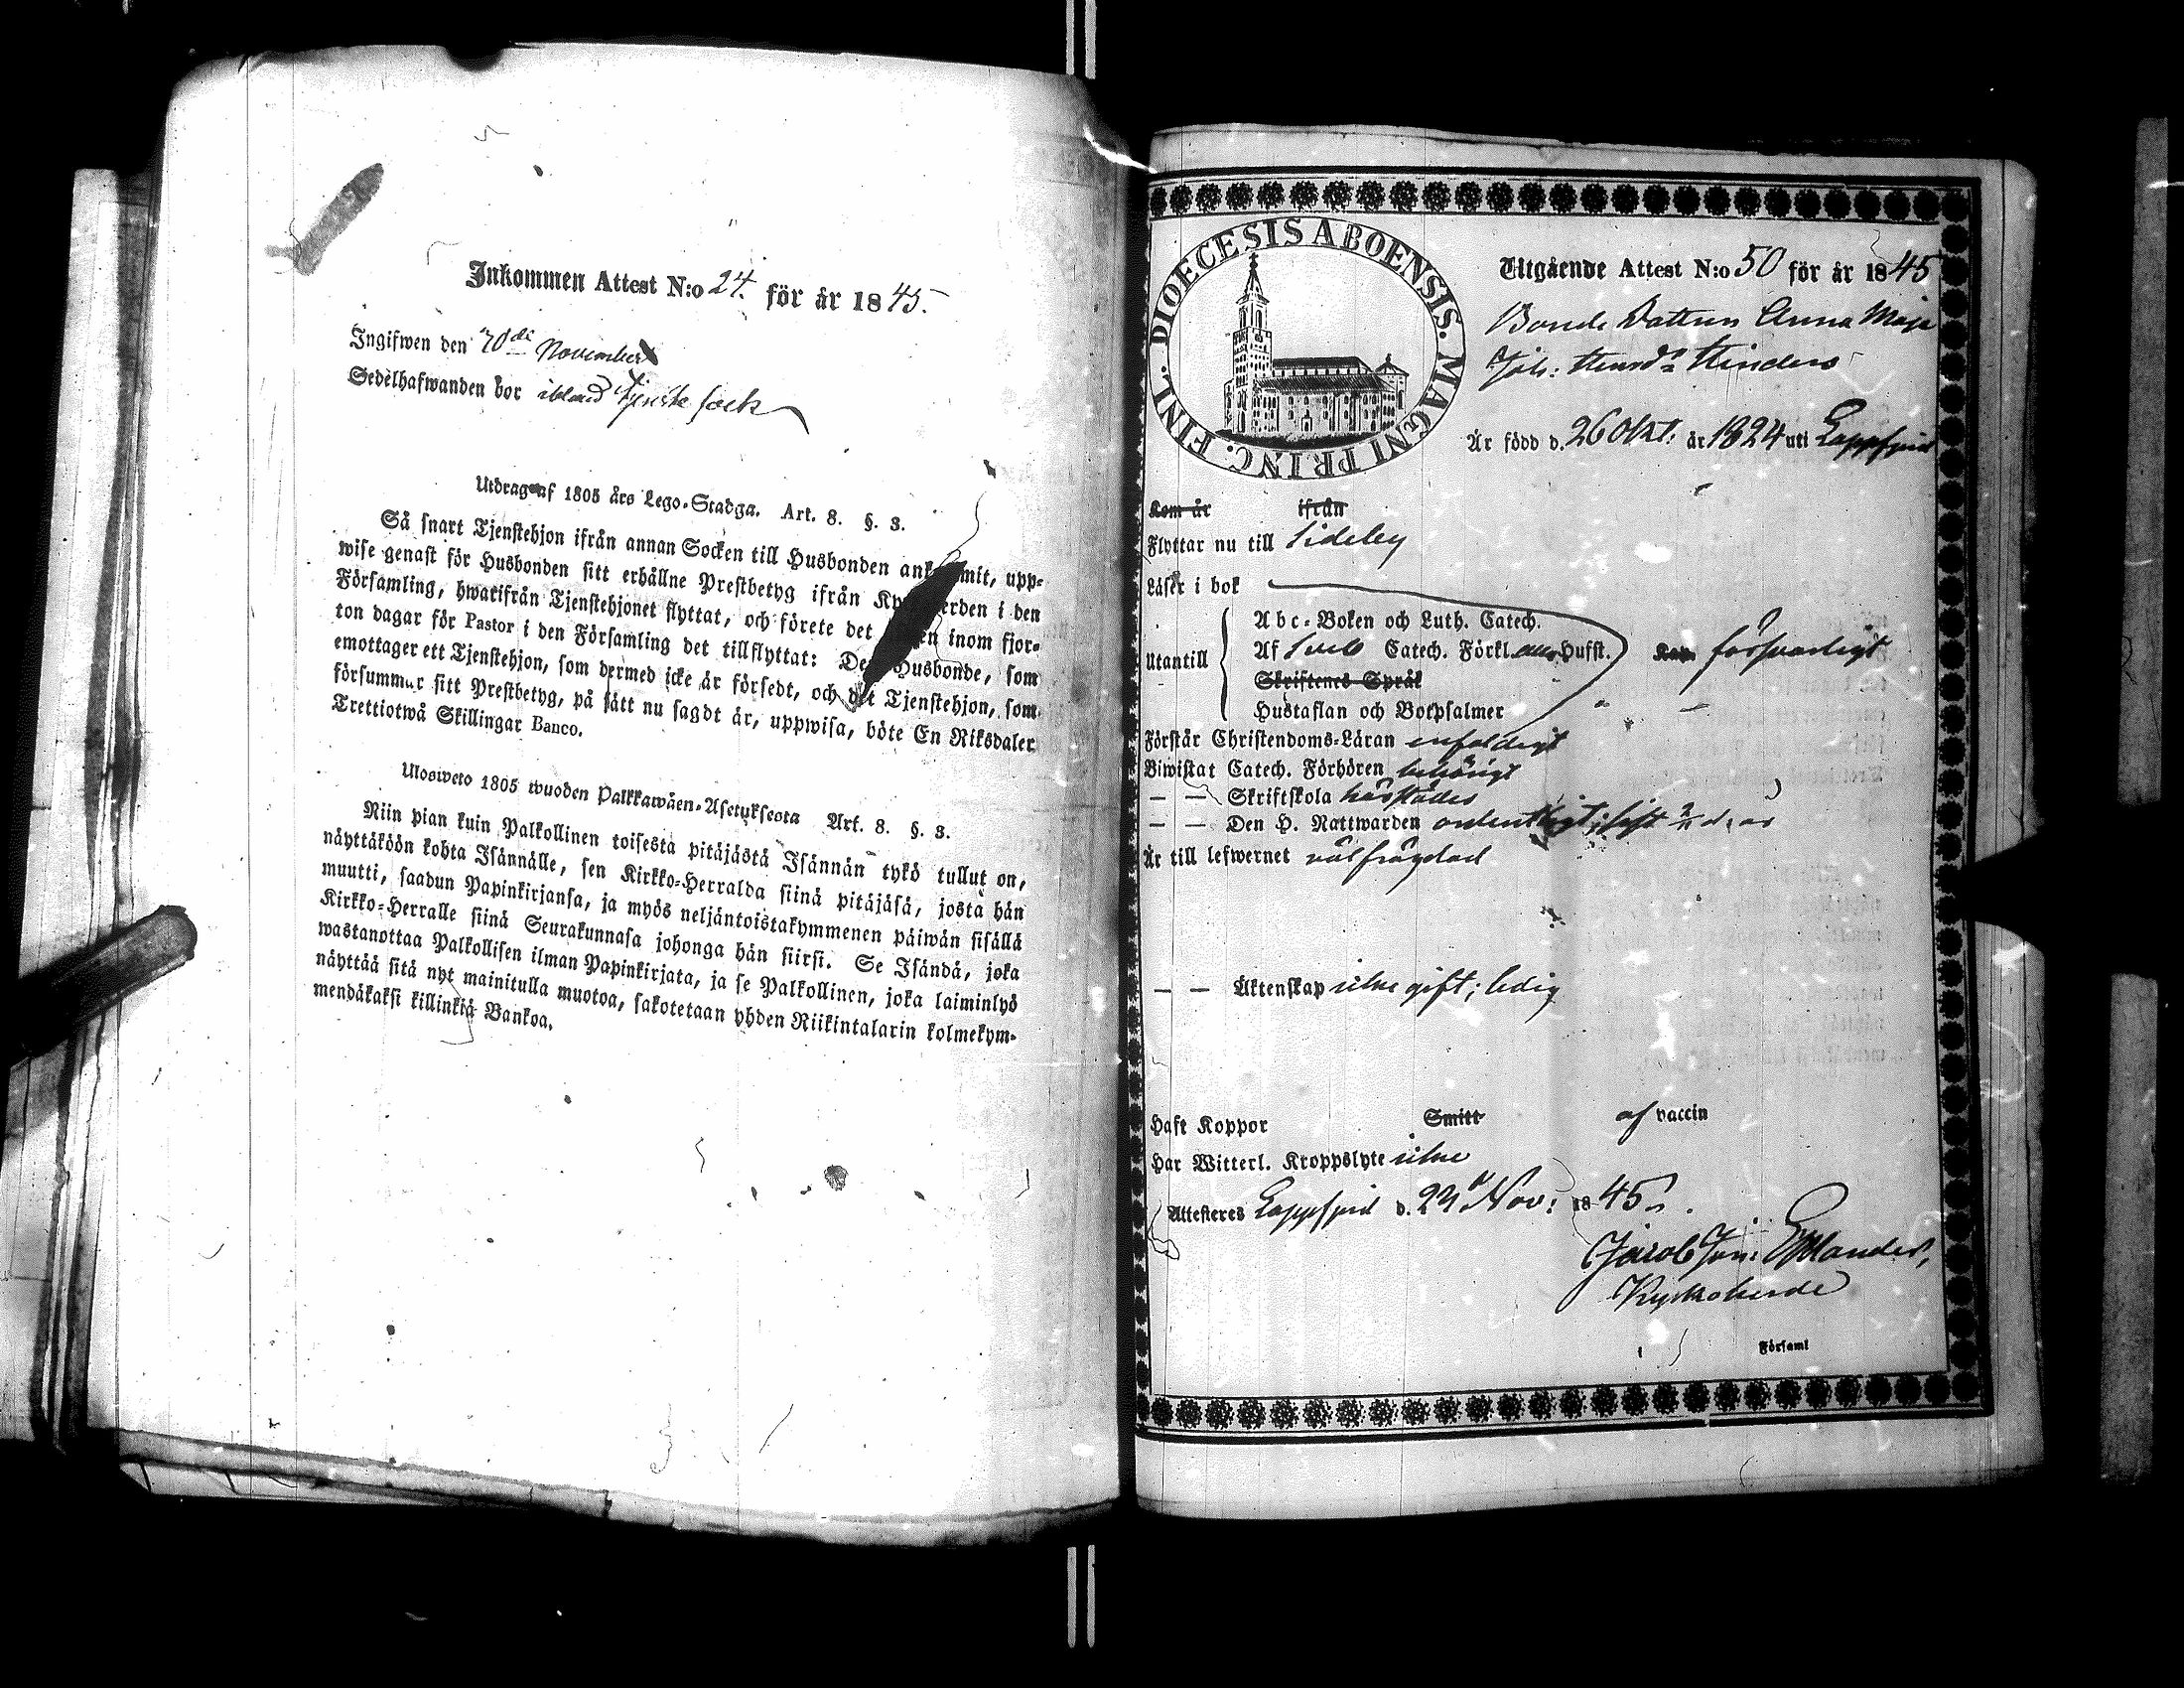 Inkommen Attest N:o 24. för år 1845.
Ingifwen den 70de November
Sedelhafwanden bor ibland tjenste folk
Utdrag af 1805 års Lego-Stadga. Art. 8. §. 3.
Så snart Tjenstehjon ifrån annan Socken till Husbonden ankommit, upp-
wise genast för Husbonden sitt erhållne Prestbetyg ifrån Kyrkoherden i den
Församling, hwarifrån Tjenstehjonet flyttat, och förete det inom fjor-
ton dagar för Pastor i den Församling det tillflyttat: Den Husbonde, som
emottager ett Tjenstehjon, som dermed icke är försedt, och det Tjenstehjon, som
försummar sitt Prestbetyg, på sätt nu sagdt är, uppwisa, böte En Riksdaler
Trettiotwå Skillingar Banco.
Ulosweto 1805 wuoden Palkkawäen-Asetuksesta Art. 8. §. 3.
Niin pian kuin Palkollinen toisesta pitäjästä Isännän tykö tullut on,
näyttäköön kohta Isännälle, sen Kirkko-Herralda siinä pitäjäsä, josta hän
muutti, saadun Papinkirjansa, ja myös neljäntoistakymmenen päiwän sisällä
Kirkko-Herralle siinä Seurakunnasa johonga hän siirsi. Se Isändä, joka
wastanottaa Palkollisen ilman Papinkirjata, ja se Palkollinen, joka laiminlyö
näyttää sitä nyt mainitulla muotoa, sakotetaan yhden Riikintalarin kolmekym-
mendäkaksi killinkiä Bankoa.
DIOECESIS ABOENSIS. MAGNI PRINC. FINL.
Utgående Attest N:o 50 för år 1845
Bonde Dottren Anna Maja
Joh: Hinders
Är född d. 26 Okt: år 1824 uti Lappfjerd
Kom år ifrån
Flyttar nu till Sideby
Läser i bok
Utantill
Abc-Boken och Luth. Catech.
Af Sveb Catech. Förkl. Hufst.
försvarligt
Skriftenes Språk
Hustaflan och Botpsalmer
Förstår Christendoms-Läran enfaldigt
Biwistat Catech. Förhören behörigt
— — Skriftskola härstädes
— — Den H. Nattwarden ordentligt; sist 2/11 d. år
Är till lefwernet välfrägdad
— — Äktenskap icke gift; ledig
Haft Koppor Smitt af vaccin
Har Witterl. Kroppslyte icke
Attesteres Lappfjerd d. 23 Nov: 1845.
Jacob Jon:
Kyrkoherde
Församl